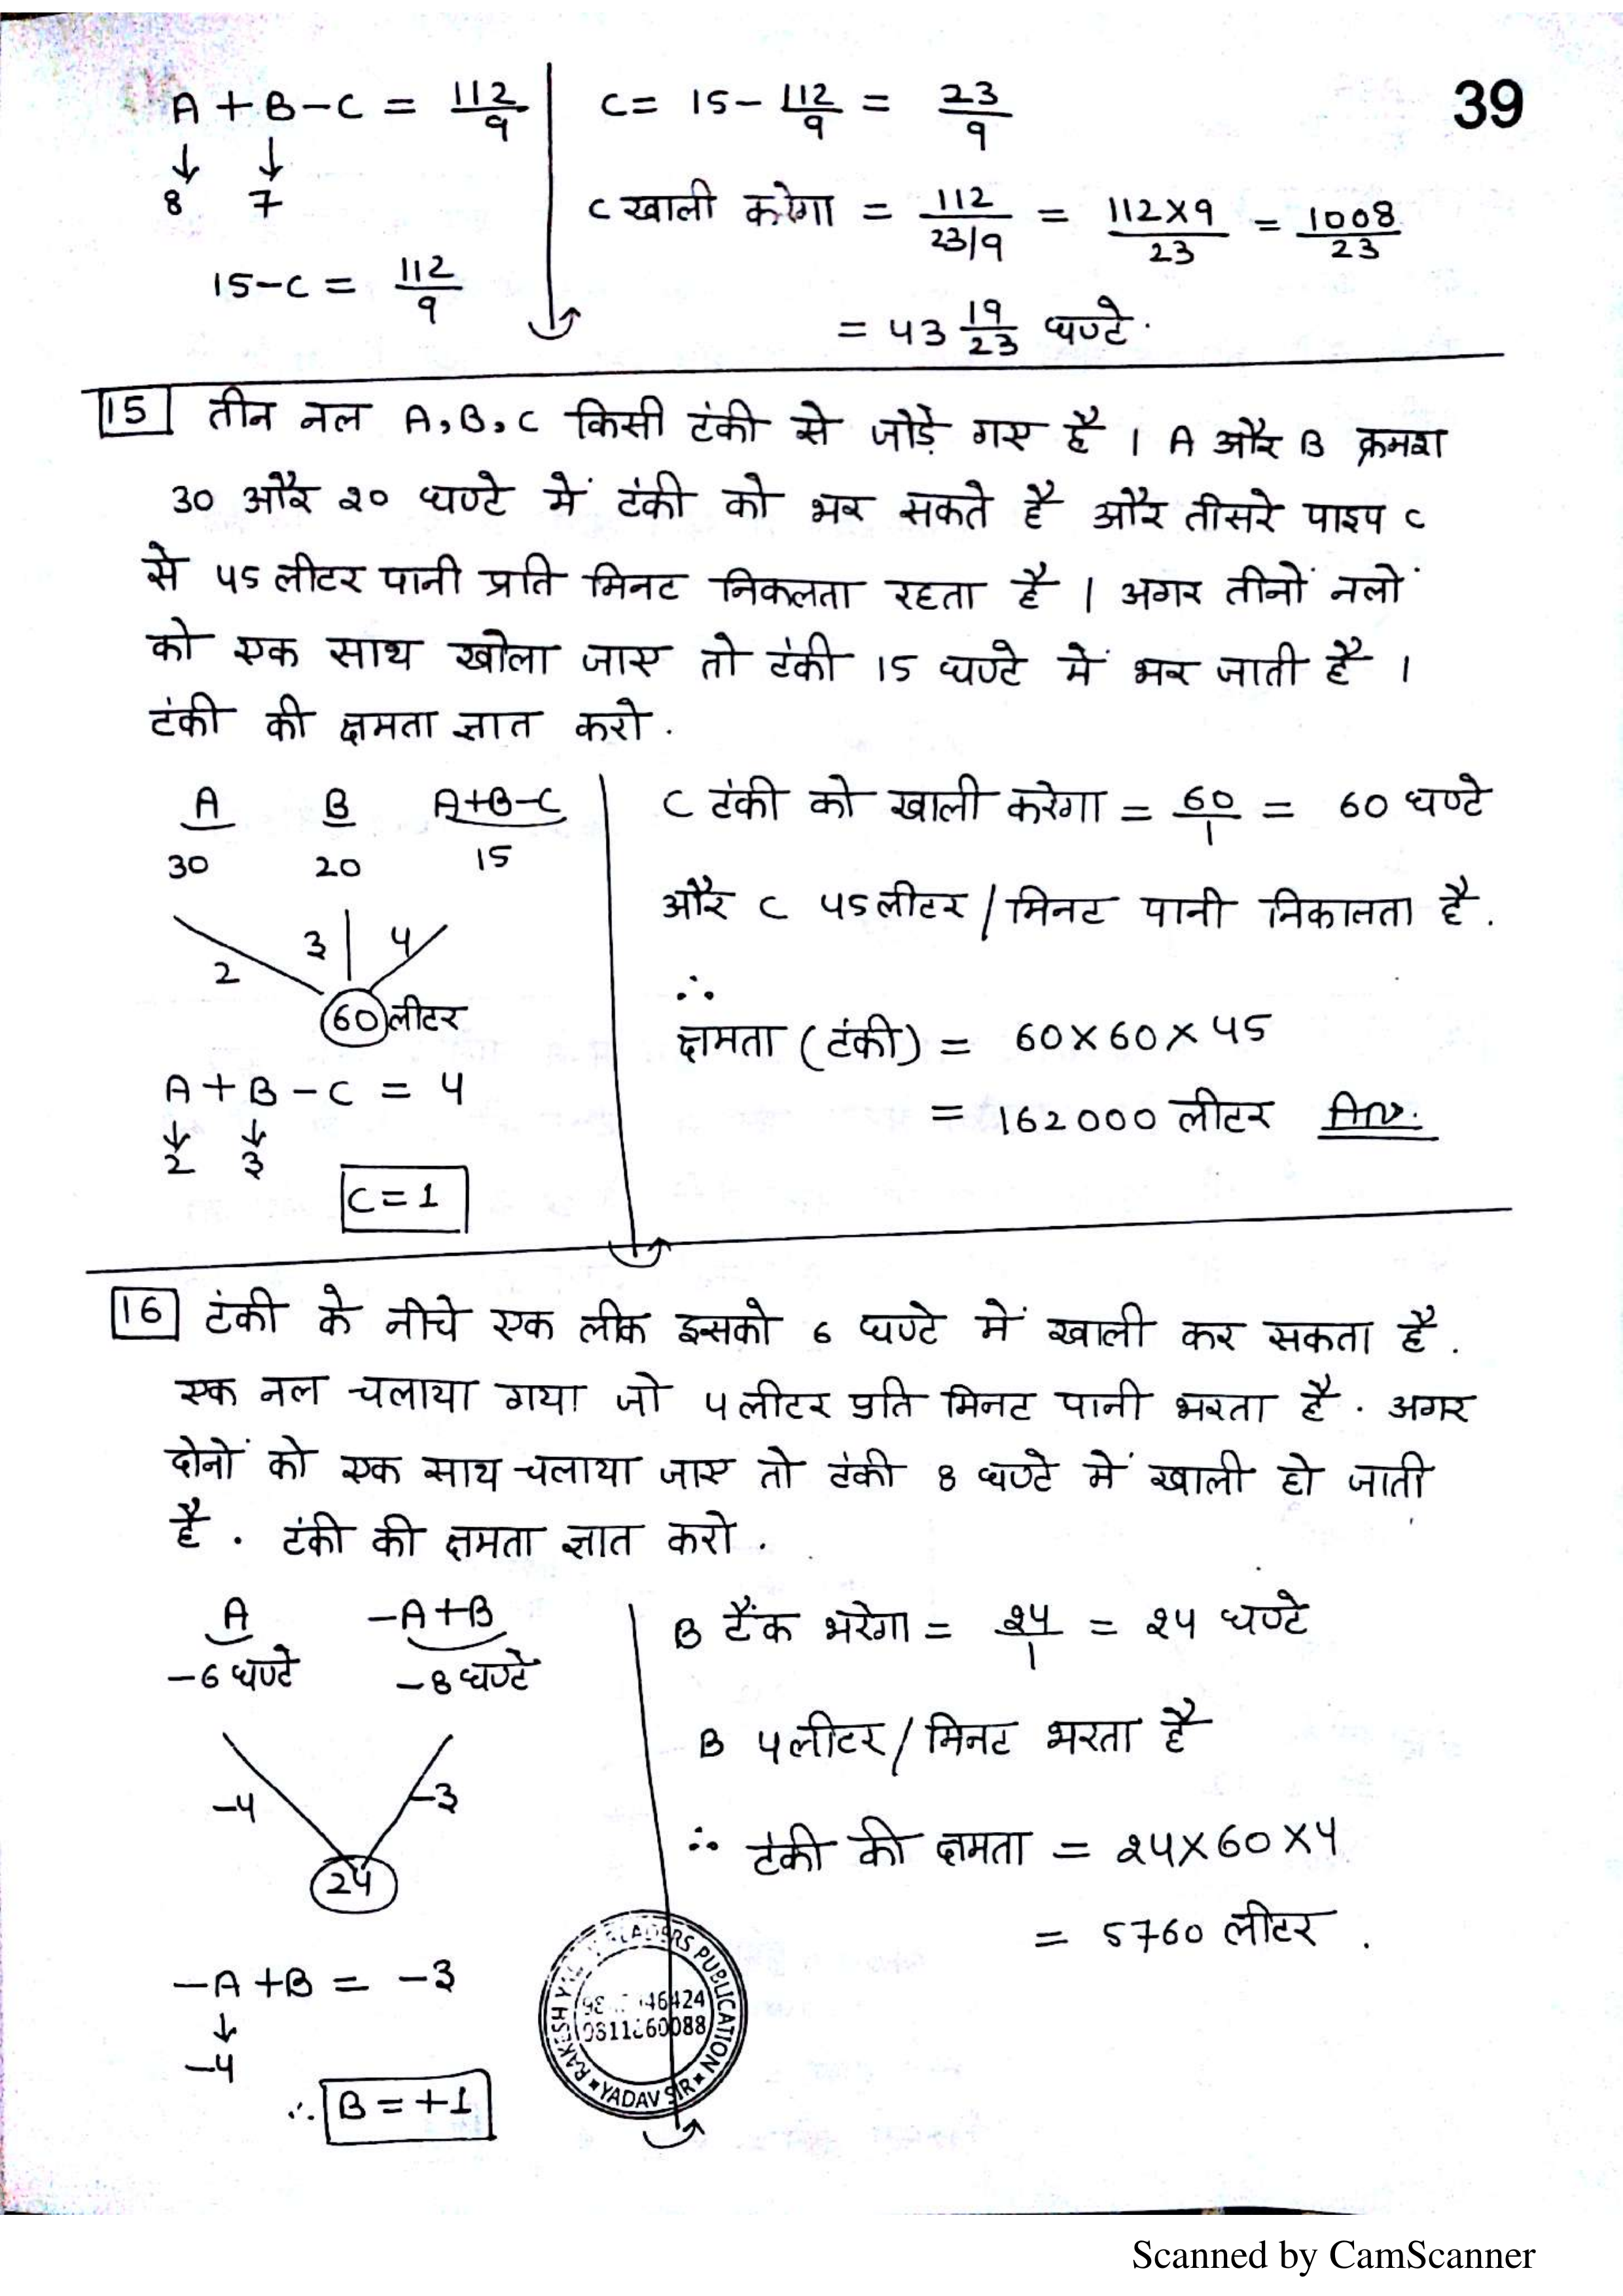 39
A + B - C = 112/9
↓ ↓
8 7
15 - C = 112/9
C = 15 - 112/9 = 23/9
C खाली करेगा = 112/23/9 = 112×9/23 = 1008/23
= 43 19/23 घण्टे.
15 तीन नल A, B, C किसी टंकी से जोड़े गए है । A और B क्रमश
30 और 20 घण्टे में टंकी को भर सकते है और तीसरे पाइप C
से 45 लीटर पानी प्रति मिनट निकलता रहता है । अगर तीनों नलों
को एक साथ खोला जाए तो टंकी 15 घण्टे में भर जाती है ।
टंकी की क्षमता ज्ञात करो .
A B A+B-C
30 20 15
2 3 4
60 लीटर
A + B - C = 4
↓ ↓
2 3
C = 1
C टंकी को खाली करेगा = 60/1 = 60 घण्टे
और C 45 लीटर / मिनट पानी निकालता है .
∴
क्षमता (टंकी) = 60 × 60 × 45
= 162000 लीटर Ans.
16 टंकी के नीचे एक लीक इसको 6 घण्टे में खाली कर सकता है .
एक नल चलाया गया जो 4 लीटर प्रति मिनट पानी भरता है . अगर
दोनों को एक साथ चलाया जाए तो टंकी 8 घण्टे में खाली हो जाती
है . टंकी की क्षमता ज्ञात करो .
A -A+B
-6 घण्टे -8 घण्टे
-4 -3
24
-A + B = -3
↓
-4
∴ B = +1
B टैंक भरेगा = 24/1 = 24 घण्टे
B 4 लीटर / मिनट भरता है
∴ टंकी की क्षमता = 24×60×4
= 5760 लीटर .
RS PUBLICATION
YADAV SIR
Scanned by CamScanner